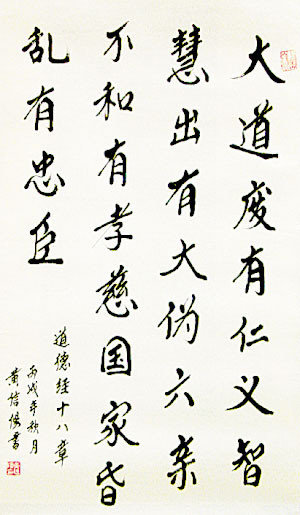 大道废有仁义智
慧出有大伪六亲
不和有孝慈国家昏
乱有忠臣
道德经十八章
丙戌年秋月
黄信俊书